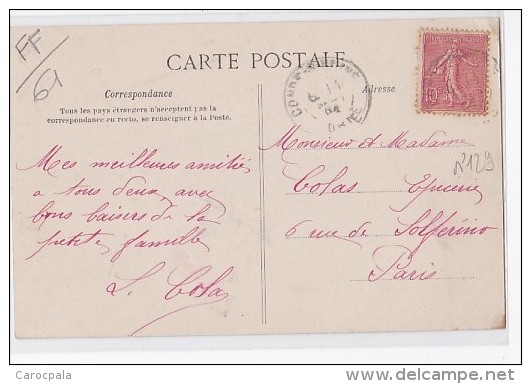 FF
61
CARTE POSTALE
Correspondance
Tous les pays étrangers n'acceptent pas la
correspondance au recto, se renseigner à la Poste.
Adresse
Mes meilleures amitiés
a tous deux, avec
bons baisers de la
petite famille
L. Colas
Monsieur et Madame
Colas Epicerie
6 rue de Solférino
Paris
n°129
10
ORNE
Carocpala
delcampe.net